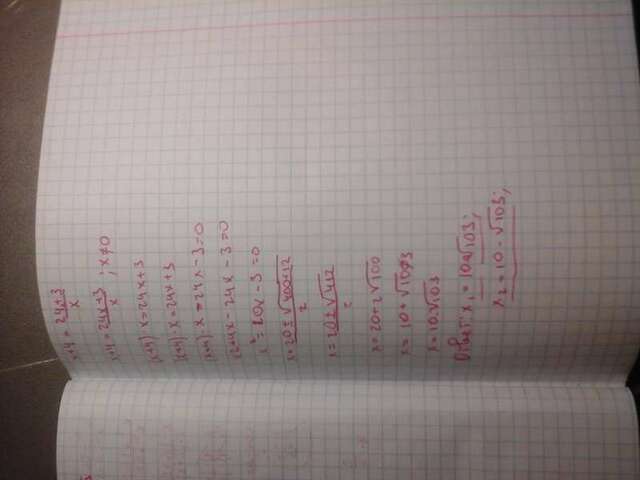 x+4 = 24+3/x
x+4 = 24x+3/x ; x≠0
(x+4)·x=24x+3
(x+4)·x=24x+3
(x+4)·x-24x-3=0
x²+4x-24x-3=0
x²-20x-3=0
x=20±√400+12/2
x=20±√412/2
x=20±2√100
x=10+√103
x=10-√103
Ответ: x₁=10+√103;
x₂=10-√103;